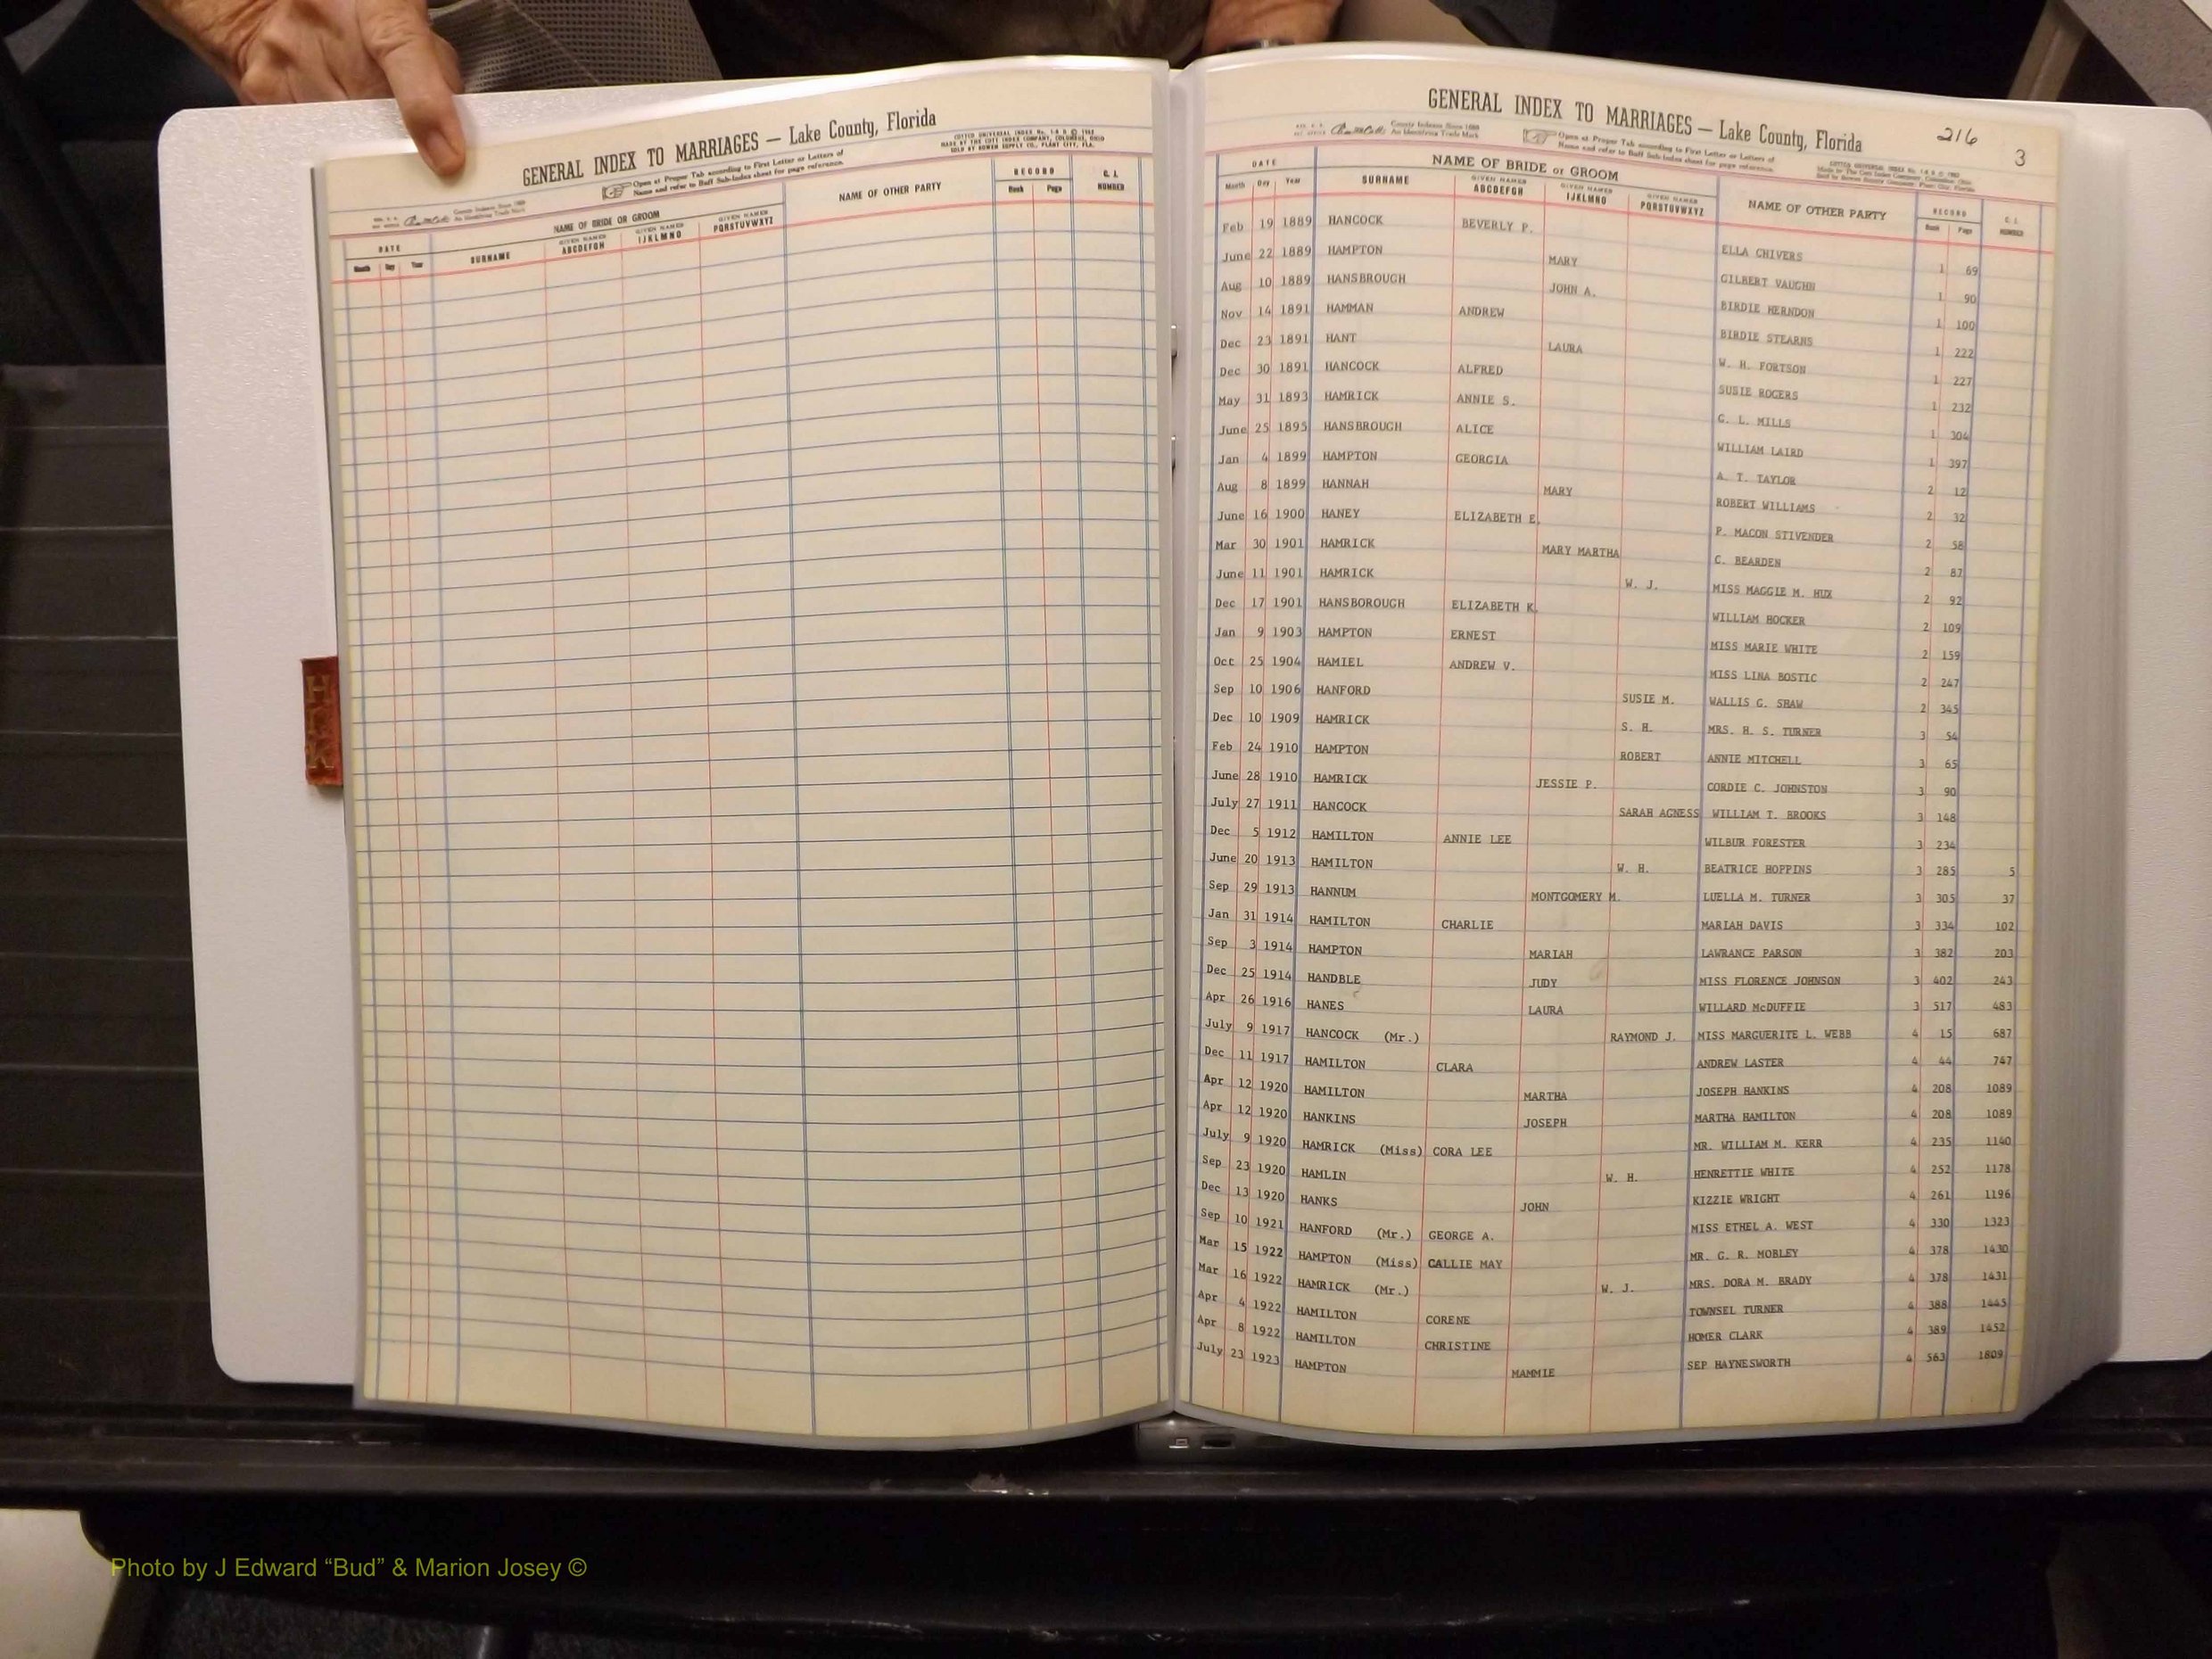 GENERAL INDEX TO MARRIAGES — Lake County, Florida
COTT'S UNIVERSAL INDEX
MADE BY THE COTT INDEX COMPANY, COLUMBUS, OHIO
SOLD BY BOWEN SUPPLY CO., PLANT CITY, FLA.
County Indexes Since 1888
An Identifying Trade Mark
Open at Proper Tab according to First Letter or Letters of
Name and refer to Buff Sub-Index sheet for page reference.
DATE NAME OF BRIDE OR GROOM NAME OF OTHER PARTY RECORD C. I. NUMBER
Month Day Year SURNAME GIVEN NAMES ABCDEFGH GIVEN NAMES IJKLMNO GIVEN NAMES PQRSTUVWXYZ Book Page
H
K
GENERAL INDEX TO MARRIAGES — Lake County, Florida
216
3
County Indexes Since 1888
An Identifying Trade Mark
Open at Proper Tab according to First Letter or Letters of
Name and refer to Buff Sub-Index sheet for page reference.
DATE NAME OF BRIDE or GROOM NAME OF OTHER PARTY RECORD C. I. NUMBER
Month Day Year SURNAME GIVEN NAMES ABCDEFGH GIVEN NAMES IJKLMNO GIVEN NAMES PQRSTUVWXYZ Book Page
Feb 19 1889 HANCOCK BEVERLY P. ELLA CHIVERS 1 69
June 22 1889 HAMPTON MARY GILBERT VAUGHN 1 90
Aug 10 1889 HANSBROUGH JOHN A. BIRDIE HERNDON 1 100
Nov 14 1891 HAMMAN ANDREW BIRDIE STEARNS 1 222
Dec 23 1891 HANT LAURA W. H. FORTSON 1 227
Dec 30 1891 HANCOCK ALFRED SUSIE ROGERS 1 232
May 31 1893 HAMRICK ANNIE S. G. L. MILLS 1 304
June 25 1895 HANSBROUGH ALICE WILLIAM LAIRD 1 397
Jan 4 1899 HAMPTON GEORGIA A. T. TAYLOR 2 12
Aug 8 1899 HANNAH MARY ROBERT WILLIAMS 2 32
June 16 1900 HANEY ELIZABETH E. P. MACON STIVENDER 2 58
Mar 30 1901 HAMRICK MARY MARTHA C. BEARDEN 2 87
June 11 1901 HAMRICK W. J. MISS MAGGIE M. HUX 2 92
Dec 17 1901 HANSBOROUGH ELIZABETH K. WILLIAM HOCKER 2 109
Jan 9 1903 HAMPTON ERNEST MISS MARIE WHITE 2 159
Oct 25 1904 HAMIEL ANDREW V. MISS LINA BOSTIC 2 247
Sep 10 1906 HANFORD SUSIE M. WALLIS G. SHAW 2 345
Dec 10 1909 HAMRICK S. H. MRS. H. S. TURNER 3 54
Feb 24 1910 HAMPTON ROBERT ANNIE MITCHELL 3 65
June 28 1910 HAMRICK JESSIE P. CORDIE C. JOHNSTON 3 90
July 27 1911 HANCOCK SARAH AGNESS WILLIAM T. BROOKS 3 148
Dec 5 1912 HAMILTON ANNIE LEE WILBUR FORESTER 3 234
June 20 1913 HAMILTON W. H. BEATRICE HOPPINS 3 285 5
Sep 29 1913 HANNUM MONTGOMERY M. LUELLA M. TURNER 3 305 37
Jan 31 1914 HAMILTON CHARLIE MARIAH DAVIS 3 334 102
Sep 3 1914 HAMPTON MARIAH LAWRANCE PARSON 3 382 203
Dec 25 1914 HANDBLE JUDY MISS FLORENCE JOHNSON 3 402 243
Apr 26 1916 HANES LAURA WILLARD McDUFFIE 3 517 483
July 9 1917 HANCOCK (Mr.) RAYMOND J. MISS MARGUERITE L. WEBB 4 15 687
Dec 11 1917 HAMILTON CLARA ANDREW LASTER 4 44 747
Apr 12 1920 HAMILTON MARTHA JOSEPH HANKINS 4 208 1089
Apr 12 1920 HANKINS JOSEPH MARTHA HAMILTON 4 208 1089
July 9 1920 HAMRICK (Miss) CORA LEE MR. WILLIAM M. KERR 4 235 1140
Sep 23 1920 HAMLIN W. H. HENRETTIE WHITE 4 252 1178
Dec 13 1920 HANKS JOHN KIZZIE WRIGHT 4 261 1196
Sep 10 1921 HANFORD (Mr.) GEORGE A. MISS ETHEL A. WEST 4 330 1323
Mar 15 1922 HAMPTON (Miss) CALLIE MAY MR. G. R. MOBLEY 4 378 1430
Mar 16 1922 HAMRICK (Mr.) W. J. MRS. DORA M. BRADY 4 378 1431
Apr 4 1922 HAMILTON CORENE TOWNSEL TURNER 4 388 1445
Apr 8 1922 HAMILTON CHRISTINE HOMER CLARK 4 389 1452
July 23 1923 HAMPTON MAMMIE SEP HAYNESWORTH 4 563 1809
Photo by J Edward “Bud” & Marion Josey ©